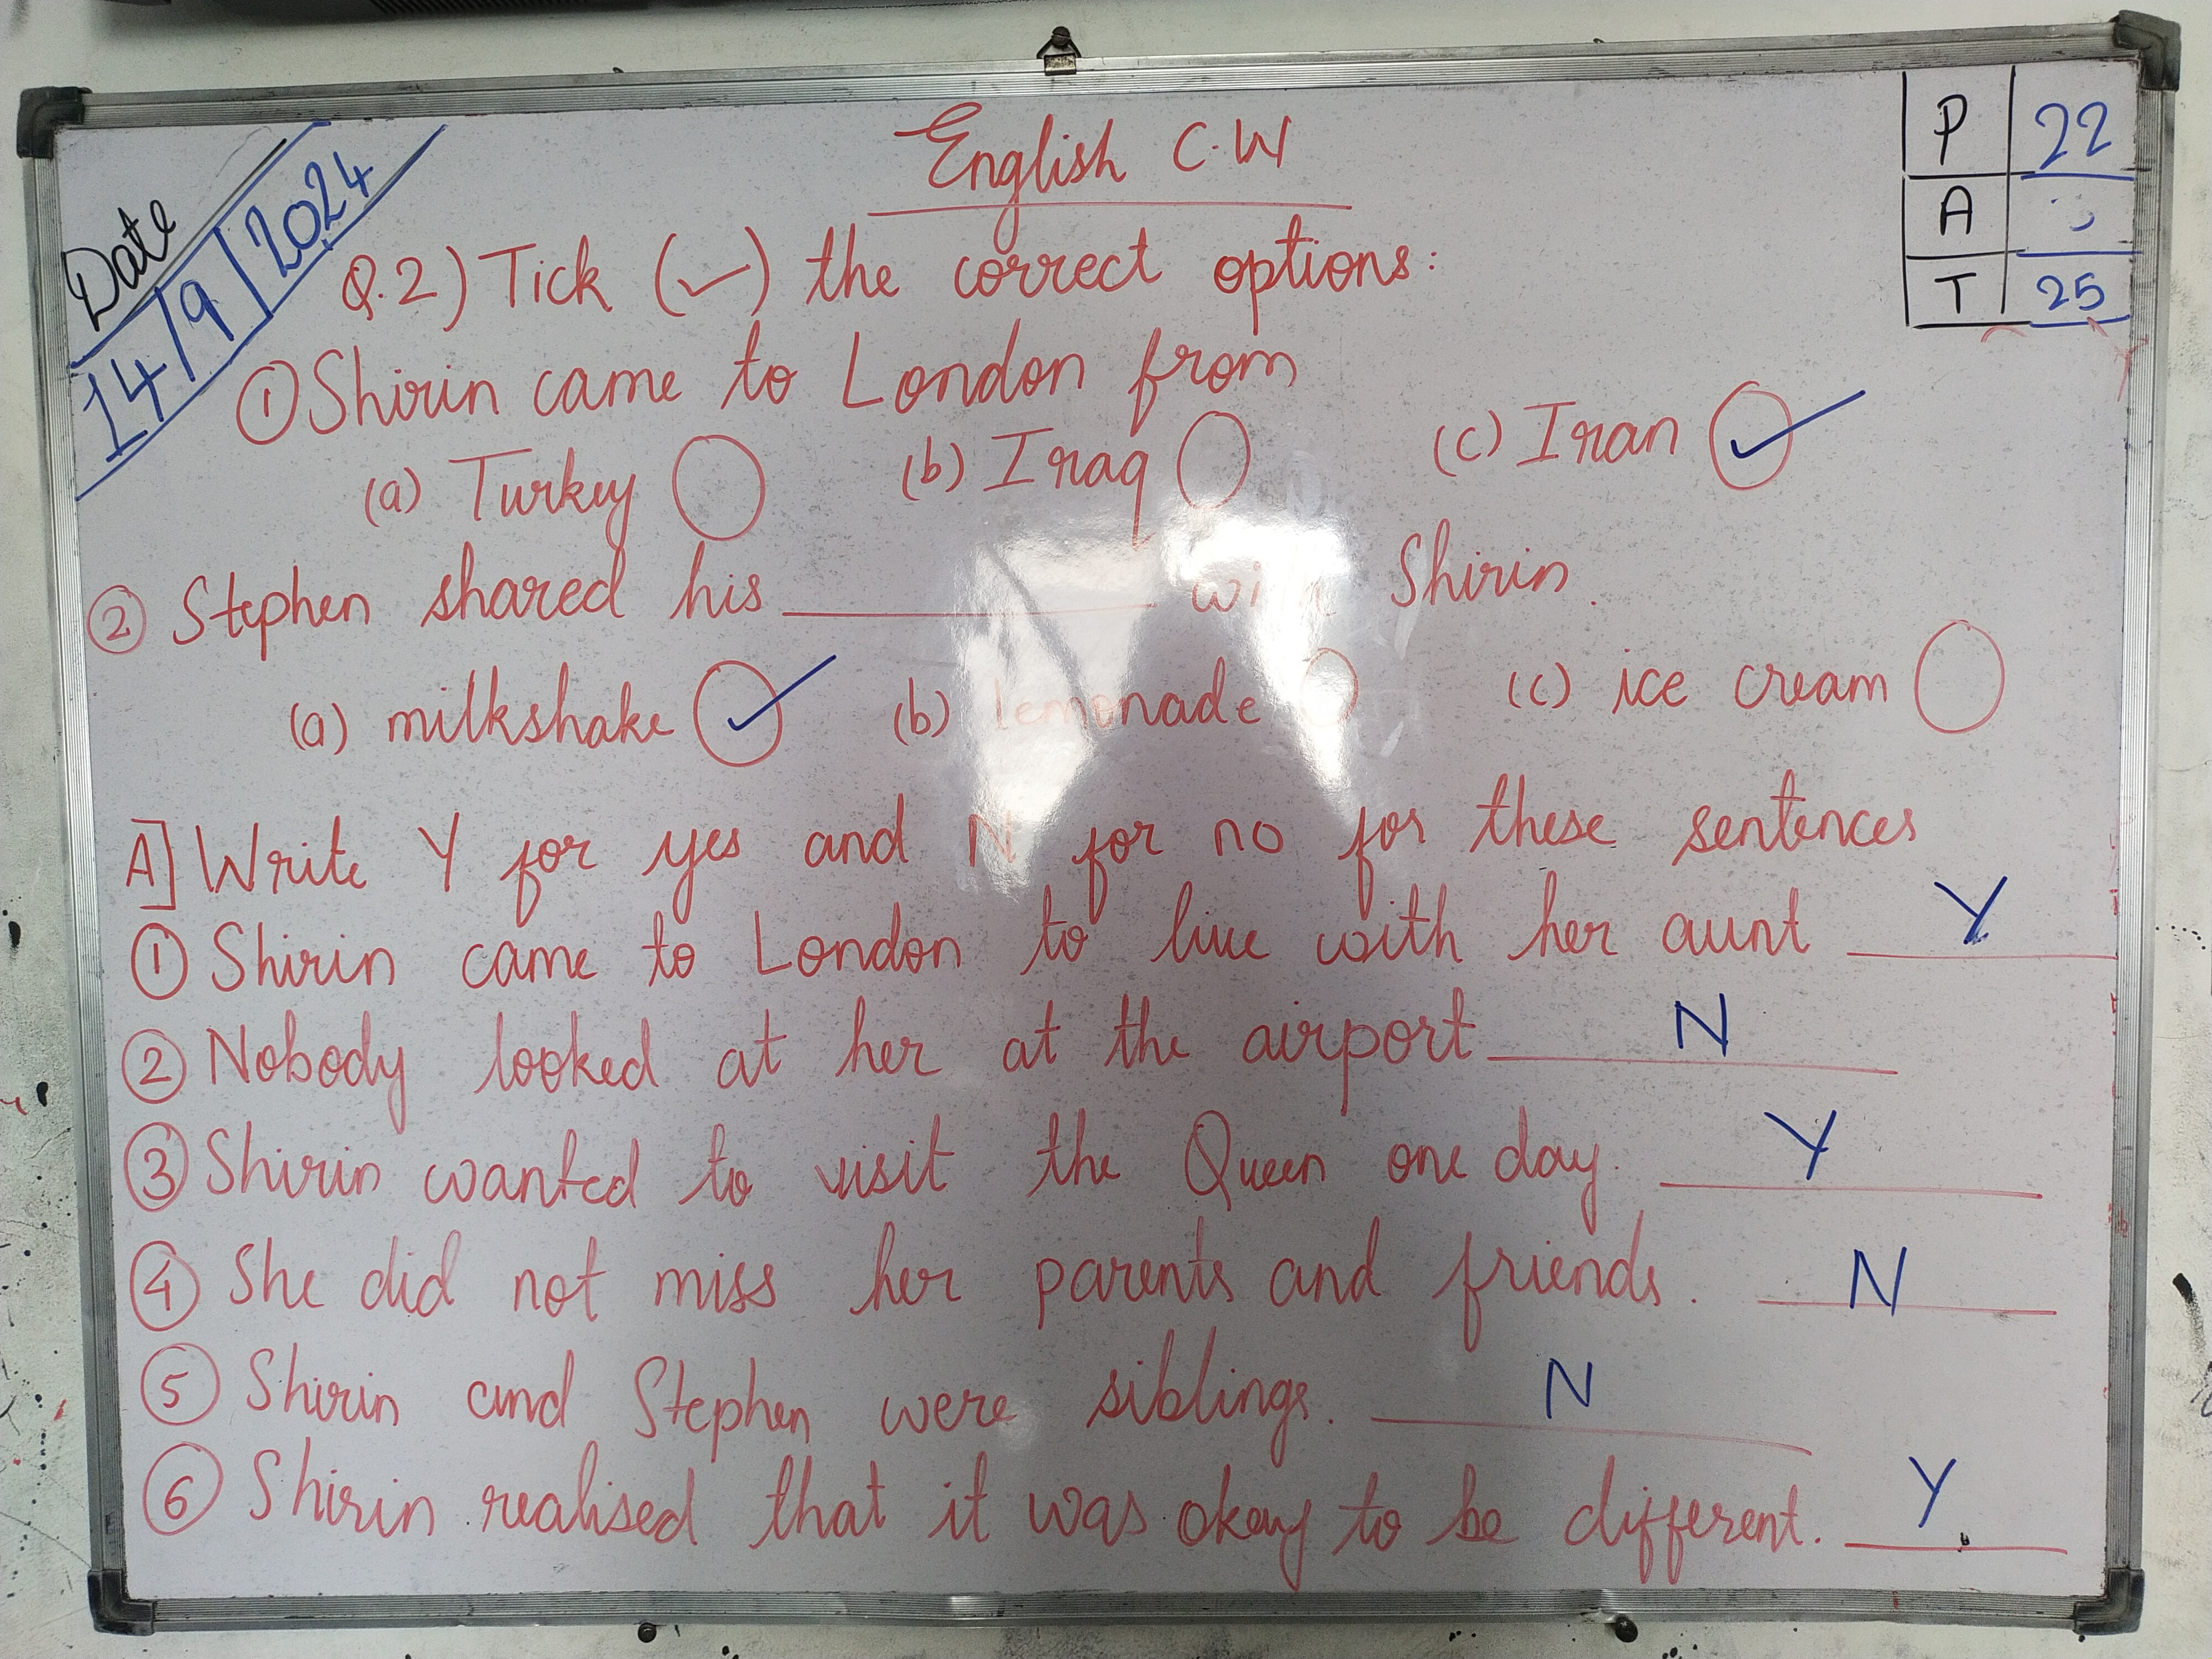 English C.W
Date
14/9/2024
P 22
A
T 25
Q.2) Tick (✓) the correct options:
① Shirin came to London from
(a) Turkey ◯ (b) Iraq ◯ (c) Iran ✓
② Stephen shared his ________ with Shirin.
(a) milkshake ✓ (b) lemonade ◯ (c) ice cream ◯
A] Write Y for yes and N for no for these sentences
① Shirin came to London to live with her aunt Y
② Nobody looked at her at the airport N
③ Shirin wanted to visit the Queen one day. Y
④ She did not miss her parents and friends. N
⑤ Shirin and Stephen were siblings. N
⑥ Shirin realised that it was okay to be different. Y